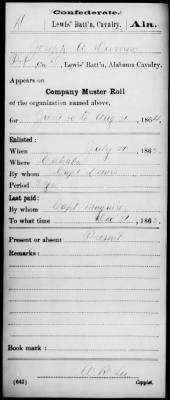 (Confederate.)
Lewis' Batt'n, Cavalry. Ala.
Joseph A.
Pvt, Co. , Lewis' Batt'n, Alabama Cavalry.
Appears on
Company Muster Roll
of the organization named above,
for June 30 to Aug 31, 1864.
Enlisted:
When July 20, 186
Where Cahaba
By whom Capt Lewis
Period 3 yrs
Last paid:
By whom Capt
To what time Dec 31, 1863.
Present or absent Present
Remarks:
Book mark:
(642) Copyist.